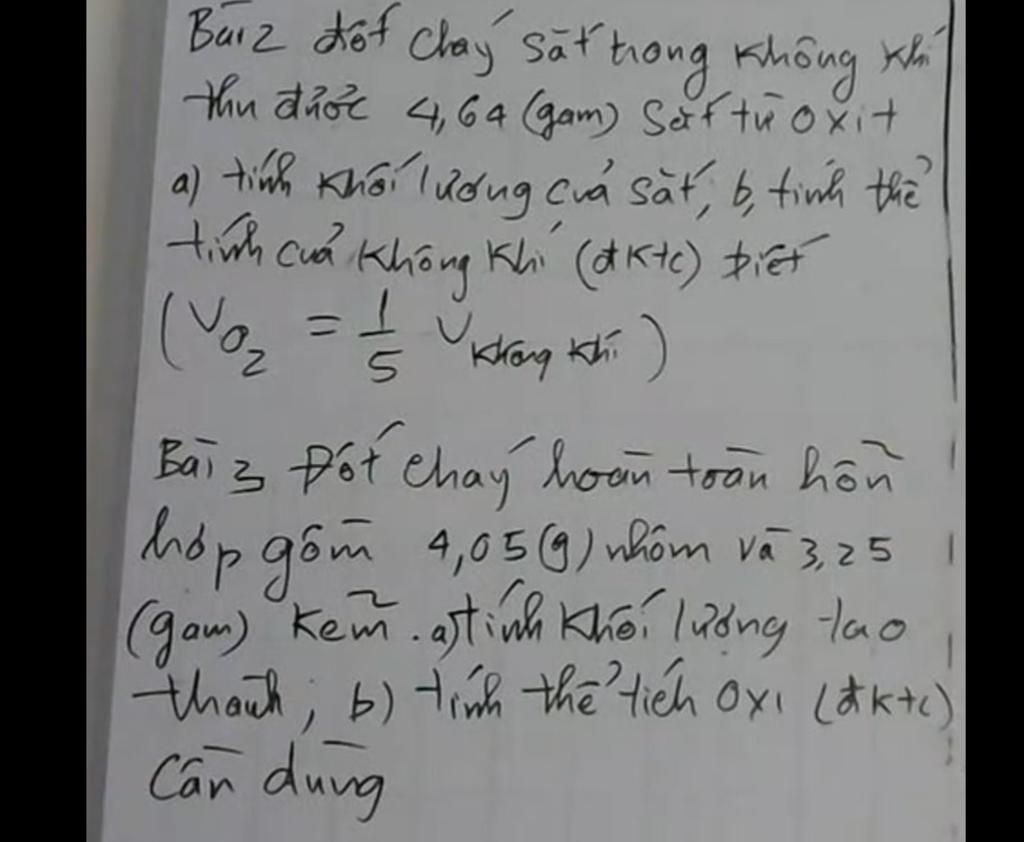 Bài 2 đốt cháy sắt trong không khí
thu được 4,64 (gam) sắt từ oxit
a) tính khối lượng của sắt, b, tính thể
tính của không khí (đktc) biết
(V O2 = 1/5 V không khí)
Bài 3 Đốt cháy hoàn toàn hỗn
hợp gồm 4,05 (g) nhôm và 3,25
(gam) Kẽm. a) tính khối lượng tạo
thành, b) tính thể tích oxi (đktc)
Cần dùng